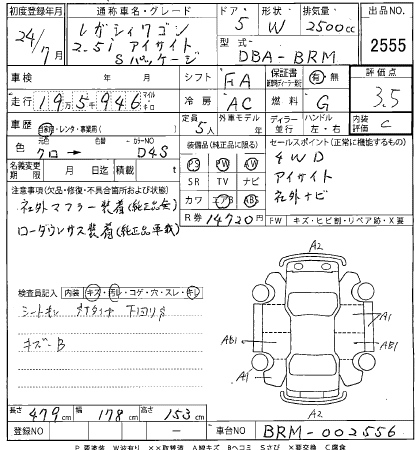 初度登録年月 通称車名・グレード ドア 形状 排気量 出品NO.
24/7月 レガシィワゴン 2.5i アイサイト Sパッケージ 5 W 2500cc 2555
型式 DBA-BRM
車検 年 月 シフト FA 保証書 有・無 評価点
走行 195946 マイル キロ 冷房 AC 燃料 G 3.5
車歴 自家用・レンタ・事業用( ) 定員 5人 外車モデル 年 ディーラー 並行 ハンドル 左・右 内装評価 C
色 元色 クロ → 色替 カラーNO D4S
装備品(純正品に限る) セールスポイント(正常に機能するもの)
名義変更期限 月 日 積載 t
PS PW AW
SR TV ナビ
カワ エアB ABS
4WD
アイサイト
社外ナビ
注意事項(欠品・修復・不具合箇所および状態)
社外マフラー装着(純正品無)
ローダウンサス装着(純正品車載)
R券 14720円
FW キズ・ヒビ割・リペア跡・X要
検査員記入 内装 キズ・汚レ・コゲ・穴・スレ・キレ
シートキレ
キズ-B
A2
A1
AB1
AB1
A1
A2
長さ 479cm 幅 178cm 高さ 153cm
登録NO - 車台NO BRM-002556
P 要塗装 W 波有り ××取替済 A 線キズ Bヘコミ Sさび X要交換 C腐食